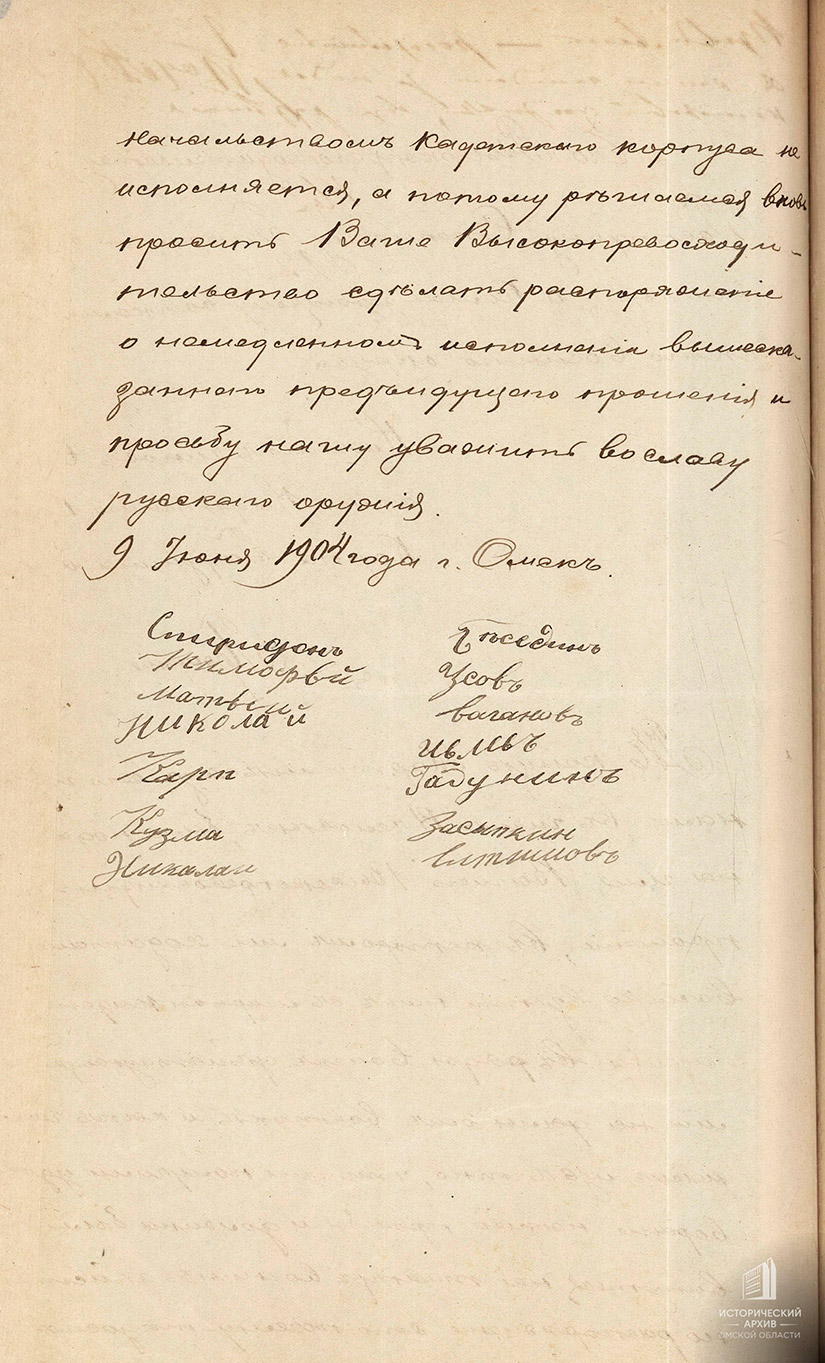 начальствомъ Кадетскаго корпуса не
исполняется, а потому рѣшаемся вновь
просить Ваше Высокопревосходи-
тельство сдѣлать распоряженіе
о немедленномъ исполненіи вышеска-
заннаго предъидущаго прошенія и
просьбу нашу уважить во славу
русскаго оружія.
9 Іюня 1904 года г. Омскъ.
Спиридонъ
Тимофѣй Усовъ
Матвѣй Вагановъ
Николай
Карп Гадунинъ
Кузма Засыпкин
Николай
ИСТОРИЧЕСКИЙ
АРХИВ
ОМСКОЙ ОБЛАСТИ